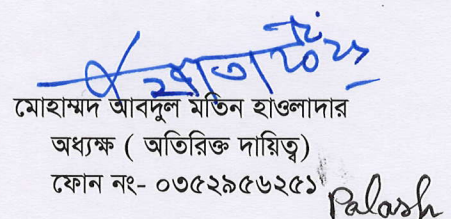 মোহাম্মদ আবদুল মতিন হাওলাদার
অধ্যক্ষ ( অতিরিক্ত দায়িত্ব)
ফোন নং- ০৩৫২৯৫৬২৫১
Palash